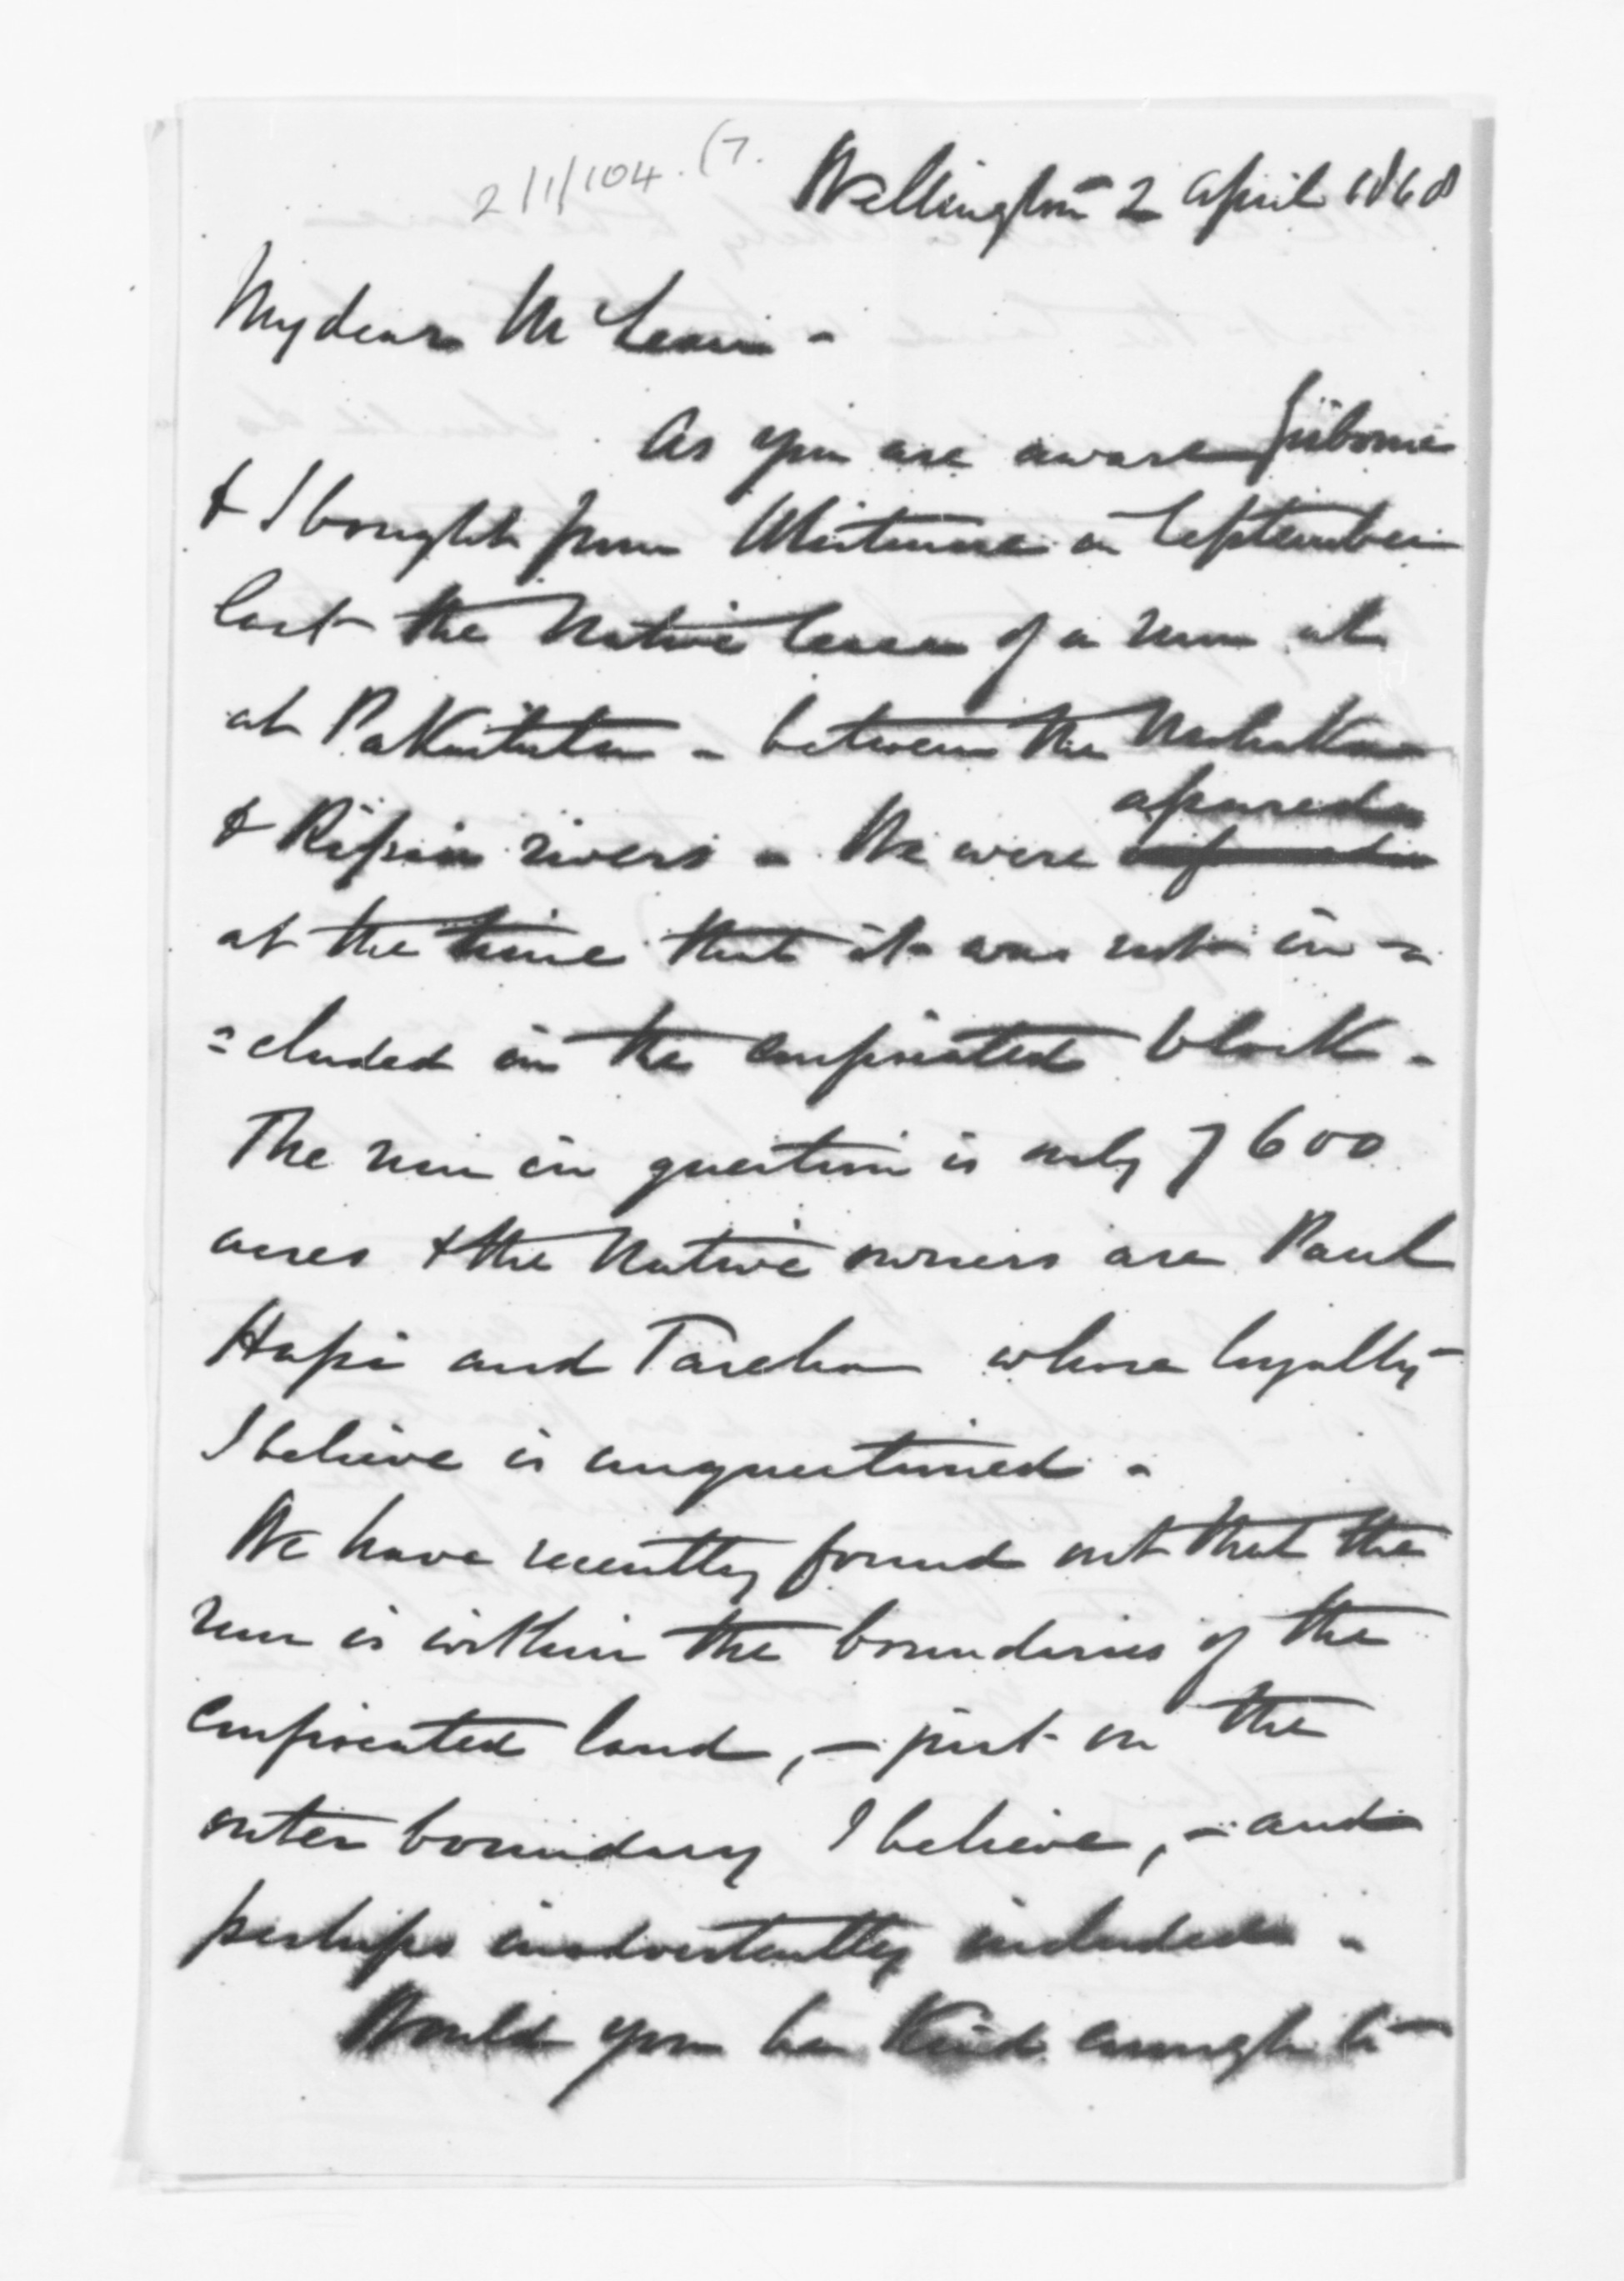 2/1/104. (7.
Wellington 2 April 1868
My dear McLean -
As you are aware Gisborne
& I bought from Whitmore in September
last the Native lease of a run at
at Pakaututu - between the Mohaka
& Ripia rivers - We were assured
at the time that it was not in-
=cluded in the confiscated block -
The run in question is only 7600
acres & the Native owners are Paul
Hapi and Tareha whose loyalty
I believe is unquestioned -
We have recently found out that the
run is within the boundaries of the
confiscated land, - just on the
outer boundary I believe, - and
perhaps inadvertently included -
Would you be kind enough to